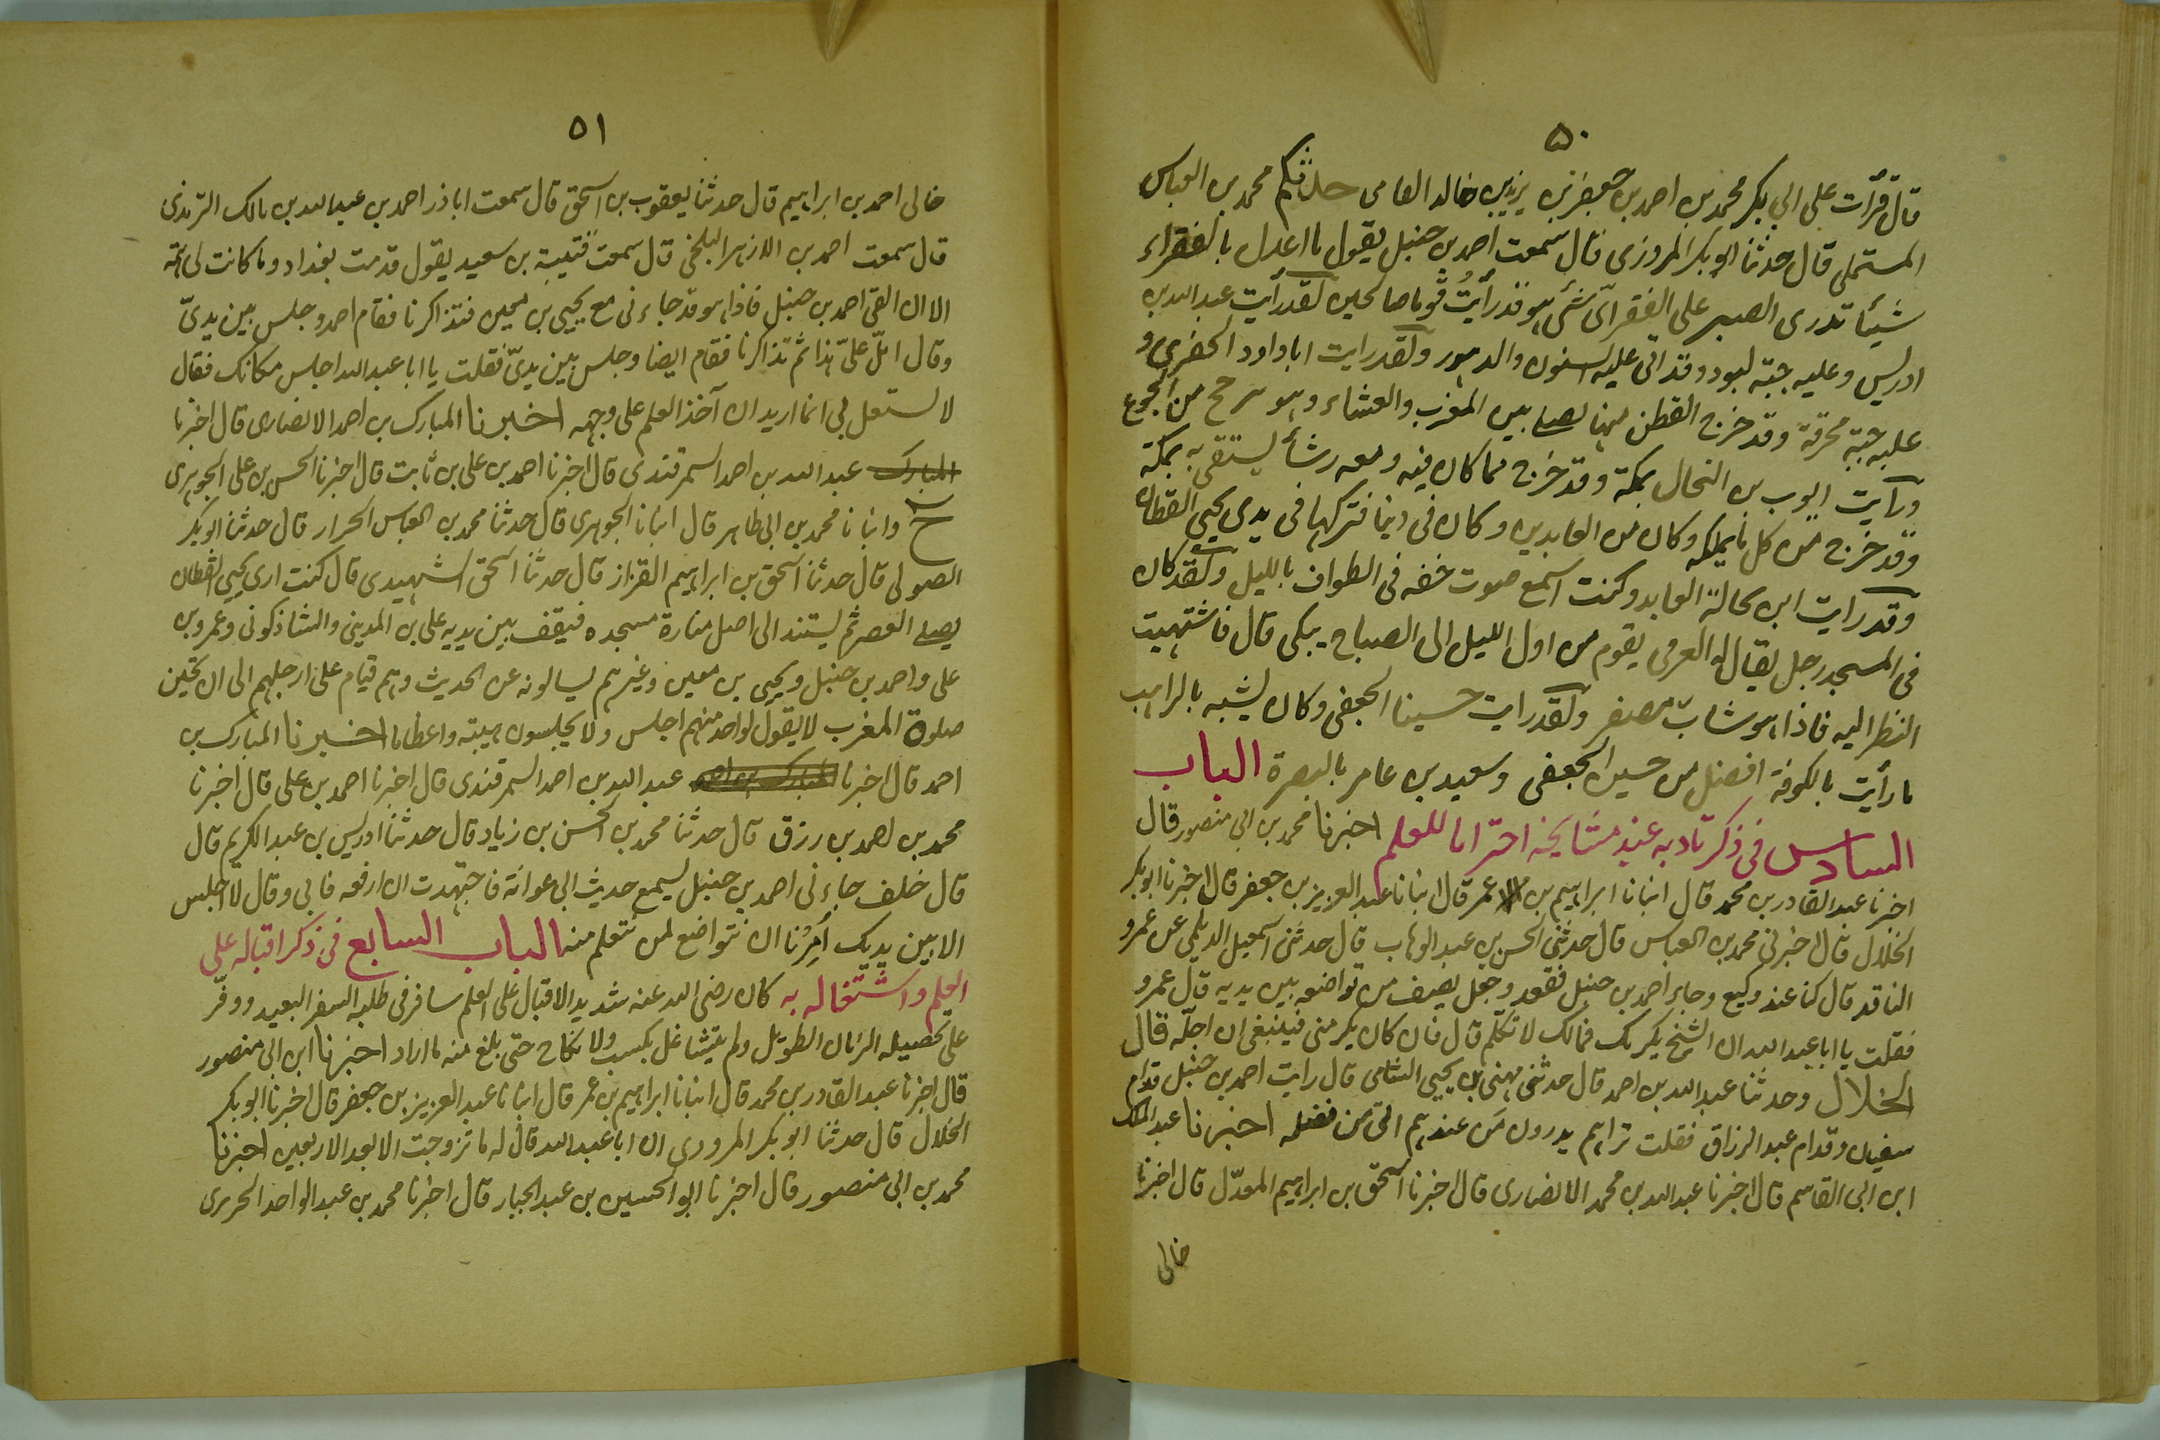 ٥٠
قال قرأت على ابي بكر محمد بن احمد بن جعفر بن يزيد بن خالد الفامى حدثكم محمد بن العباس
المستملى قال حدثنا ابو بكر المروزى قال سمعت احمد بن حنبل يقول ما اعدل بالفقراء
شيئا تدرى الصبر على الفقر اىّ شئ هو قد رأيتُ قوما صالحين لقد رأيت عبد الله بن
ادريس وعليه جبته لبود وقد اتى عليه السنون والدهور ولقد رايت ابا داود الحفرى و
عليه جبة مخرقة وقد خرج القطن منها يصلى بين المغرب والعشاء وهو يترجح من الجوع
ورأيت ايوب بن النجال بمكة وقد خرج مما كان فيه ومعه رشأ يستقى به بمكة
وقد خرج من كل ما يملكه وكان من العابدين وكان فى دنيا فتركها فى يدى يحيى القطان
وقد رايت ابن بحالة العابد وكنت اسمع صوت خفه فى الطواف بالليل ولقد كان
فى المسجد رجل يقال له العرمى يقوم من اول الليل الى الصباح يبكى قال فاشتهيت
النظر اليه فاذا هو شابّ مصفر ولقد رايت حسينا الجعفى وكان يشبه بالراهب
ما رأيت بالكوفة افضل من حسين الجعفى وسعيد بن عامر بالبصرة الباب
السادس فى ذكر تادبه عند مشايخه احتراما للعلم اخبرنا محمد بن ابى منصور قال
اخبرنا عبد القادر بن محمد قال انبانا ابراهيم بن عمر قال انبانا عبد العزيز بن جعفر قال اخبرنا ابو بكر
الخلال قال اخبرنى محمد بن العباس قال حدثنى الحسن بن عبد الوهاب قال حدثنى اسمعيل الديلمى عن عمرو
الناقد قال كنا عند وكيع وجاء احمد بن حنبل فقعد وجعل يصف من تواضعه بين يديه قال عمرو
فقلت يا ابا عبد الله ان الشيخ يكرمك فمالك لا تكلّم قال فان كان يكرمنى فينبغى ان اجلّه قال
الخلال وحدثنا عبد الله بن احمد قال حدثنى مهنى بن يحيى الشامى قال رايت احمد بن حنبل قدام
سفين وقدام عبد الرزاق فقلت تراهم يدرون مَن عندهم اى من فضله اخبرنا عبد الملك
ابن ابى القاسم قال اخبرنا عبد الله بن محمد الانصارى قال اخبرنا اسحق بن ابراهيم المعدّل قال اخبرنا
خالى
٥١
خالى احمد بن ابراهيم قال حدثنا يعقوب بن اسحق قال سمعت اباذر احمد بن عبد الله بن مالك الترمذى
قال سمعت احمد بن الازهر البلخى قال سمعت قتيبة بن سعيد يقول قدمت بغداد وما كانت لى همة
الا ان القى احمد بن حنبل فاذا هو قد جاءنى مع يحيى بن معين فتذاكرنا فقام احمد وجلس بين يدىّ
وقال املّ علىّ هذا ثم تذاكرنا فقام ايضا وجلس بين يدىّ فقلت يا ابا عبد الله اجلس مكانك فقال
لا تشتغل بى انما اريد ان آخذ العلم على وجهه اخبرنا المبارك بن احمد الانصارى قال اخبرنا
المبارك عبد الله بن احمد السمرقندى قال اخبرنا احمد بن على بن ثابت قال اخبرنا الحسن بن على الجوهرى
ح وانبانا محمد بن ابى طاهر قال انبانا الجوهرى قال حدثنا محمد بن العباس الخراز قال حدثنا ابو بكر
الصولى قال حدثنا اسحق بن ابراهيم القزاز قال حدثنا اسحق الشهيدى قال كنت ارى يحيى القطان
يصلى العصر ثم يستند الى اصل منارة مسجده فيقف بين يديه على بن المدينى والشاذكونى وعمرو بن
على واحمد بن حنبل ويحيى بن معين وغيرهم يسالونه عن الحديث وهم قيام على ارجلهم الى ان تحين
صلوة المغرب لا يقول لواحد منهم اجلس ولا يجلسون هيبته واعظاما اخبرنا المبارك بن
احمد قال اخبرنا المبارك بن احمد عبد الله بن احمد السمرقندى قال اخبرنا احمد بن على قال اخبرنا
محمد بن احمد بن رزق قال حدثنا محمد بن الحسن بن زياد قال حدثنا ادريس بن عبد الكريم قال
قال خلف جاءنى احمد بن حنبل يسمع حديث ابى عوانة فاجتهدت ان ارفعه فابى وقال لا اجلس
الا بين يديك اُمِرْنا ان نتواضع لمن نتعلم منه الباب السابع فى ذكر اقباله على
العلم واشتغاله به كان رضى الله عنه شديد الاقبال على العلم سافر فى طلبه السفر البعيد ووفّر
على تحصيله الزمان الطويل ولم يتشاغل بكسب ولا نكاح حتى بلغ منه ما اراد اخبرنا ابن ابى منصور
قال اخبرنا عبد القادر بن محمد قال انبانا ابراهيم بن عمر قال انبانا عبد العزيز بن جعفر قال اخبرنا ابو بكر
الخلال قال حدثنا ابو بكر المروذى ان ابا عبد الله قال له ما تزوجت الا بعد الاربعين اخبرنا
محمد بن ابى منصور قال اخبرنا ابو الحسين بن عبد الجبار قال اخبرنا محمد بن عبد الواحد الحريرى